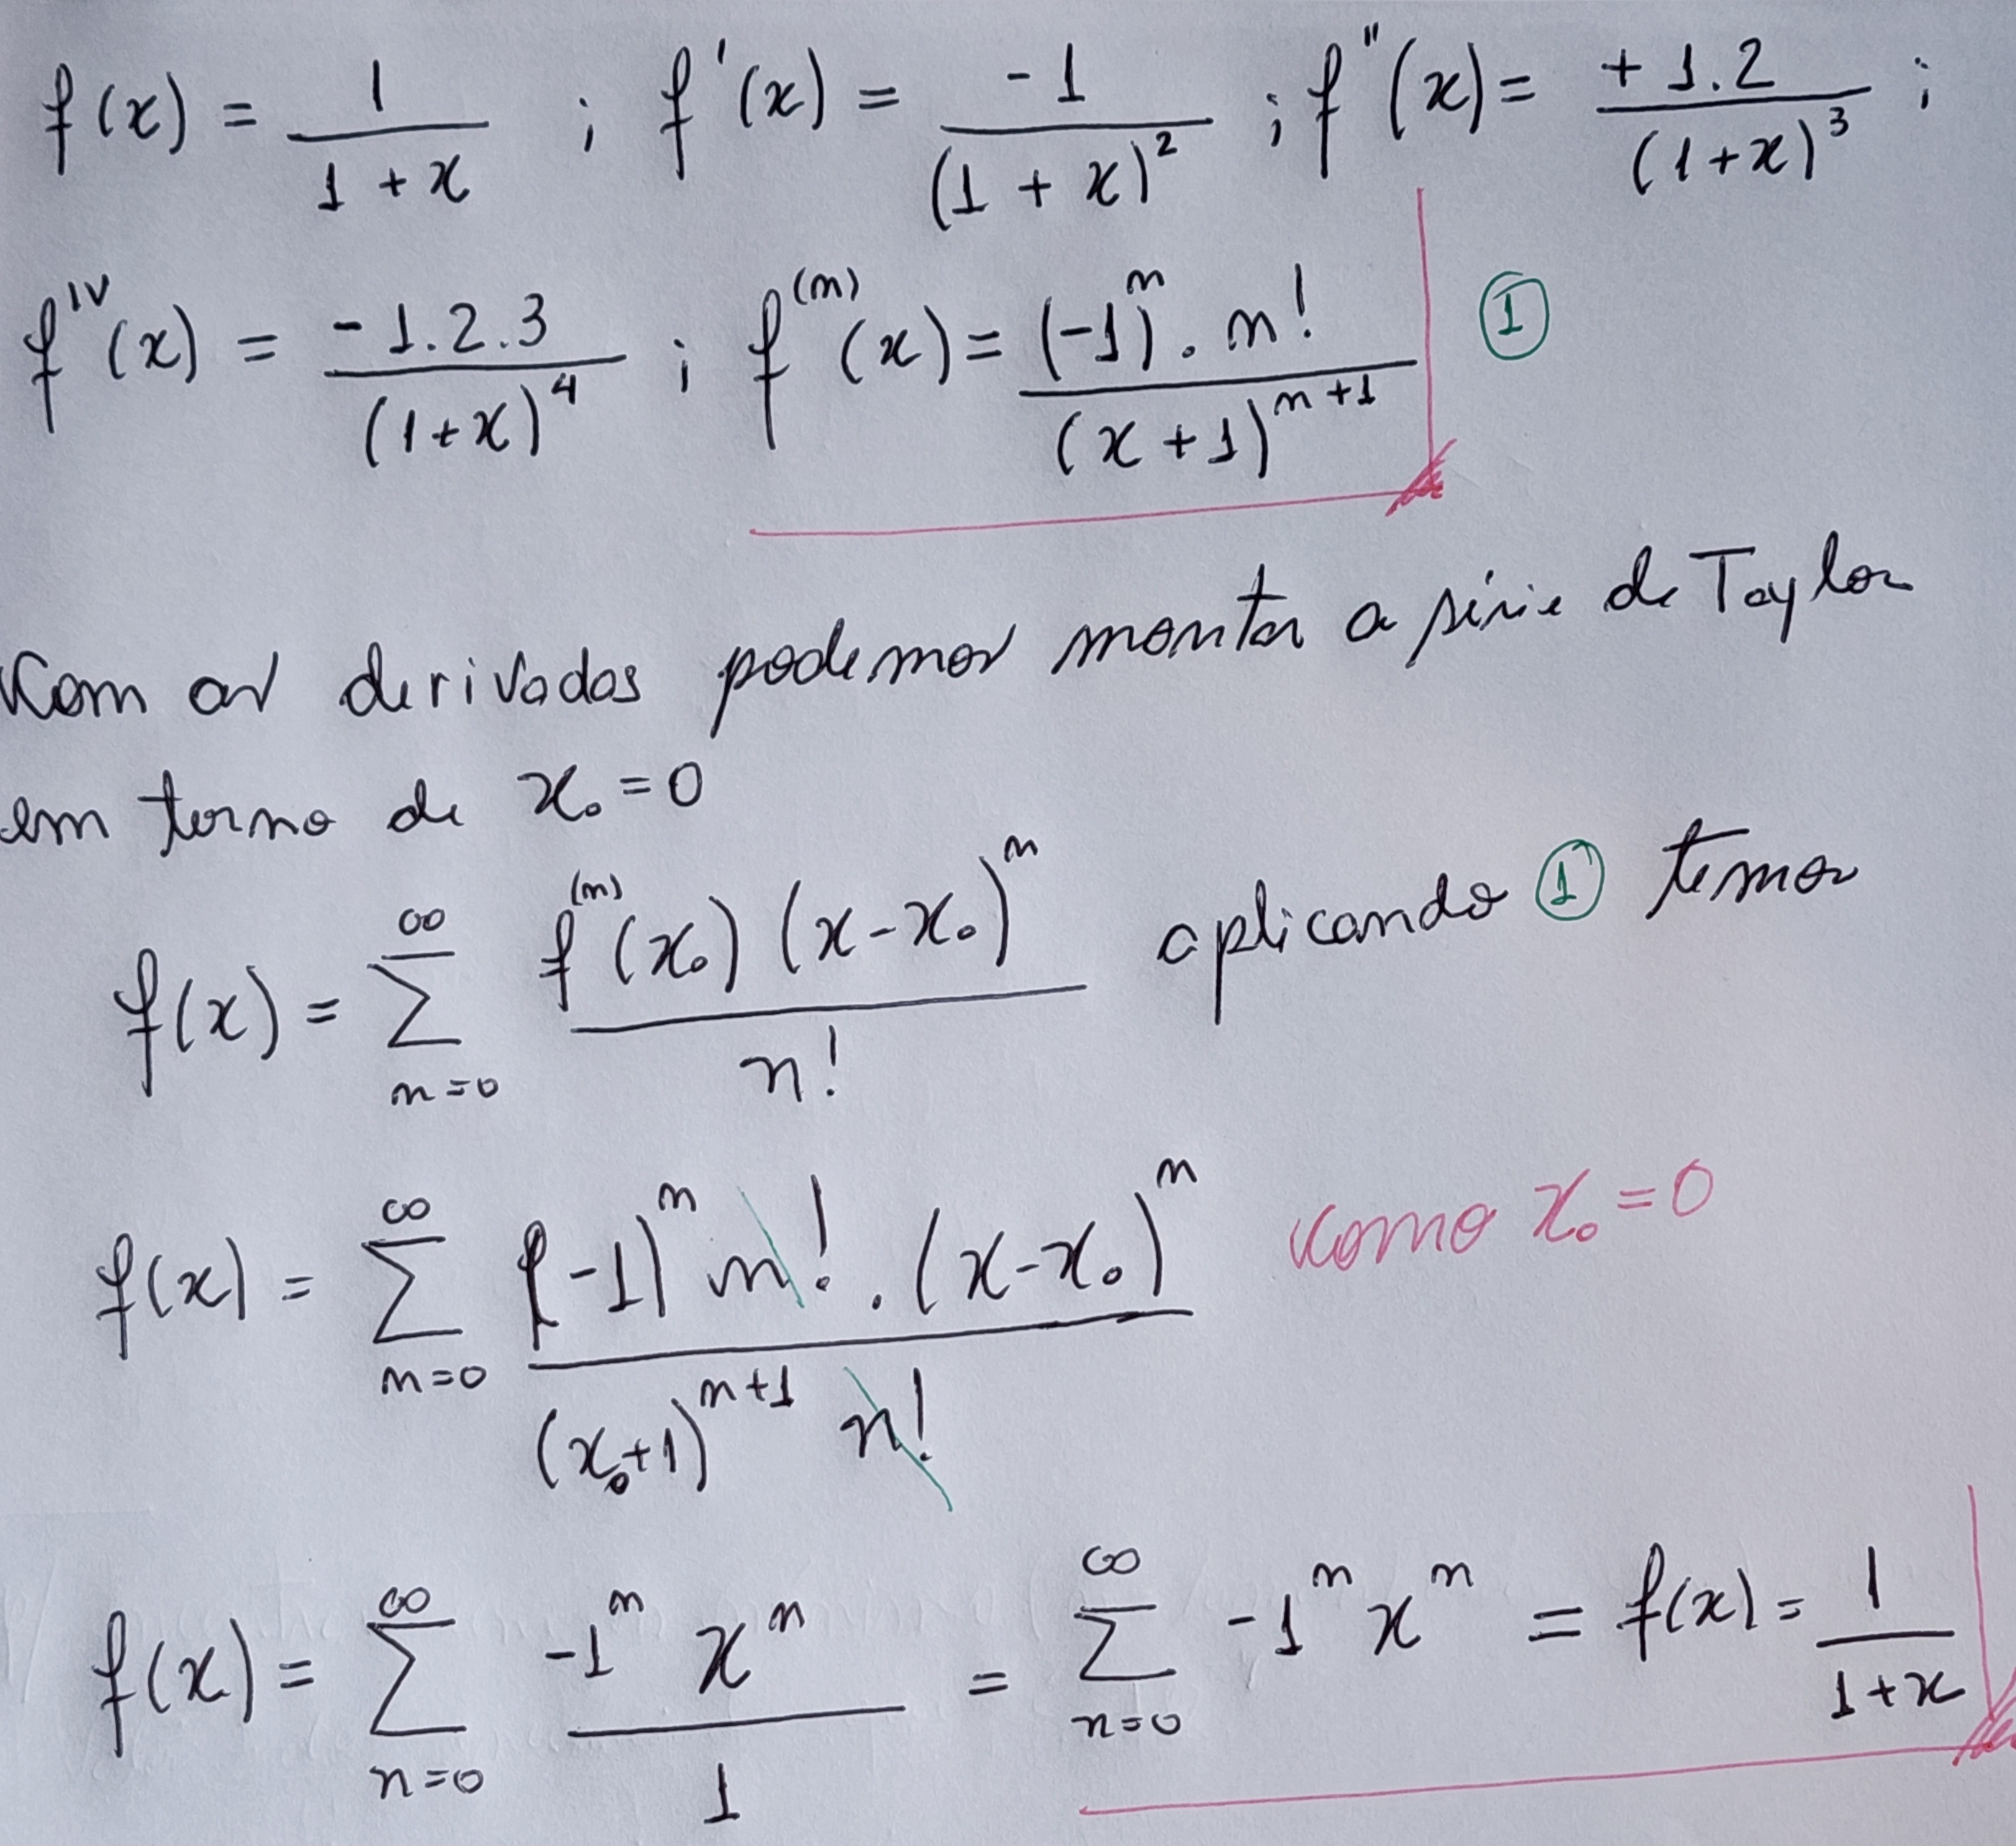 f(x) = 1/(1 + x) ; f'(x) = -1/(1 + x)² ; f''(x) = +1.2/(1+x)³ ;
f^IV(x) = -1.2.3/(1+x)⁴ ; f^(n)(x) = (-1)^n . n!/(x+1)^(n+1) ①
Com as derivadas podemos montar a série de Taylor
em torno de x₀ = 0
f(x) = ∑_{n=0}^{∞} f^(n)(x₀) (x-x₀)^n / n! aplicando ① temos
f(x) = ∑_{n=0}^{∞} (-1)^n n! . (x-x₀)^n / (x₀+1)^(n+1) n! como x₀ = 0
f(x) = ∑_{n=0}^{∞} -1^n x^n / 1 = ∑_{n=0}^{∞} -1^n x^n = f(x) = 1/(1+x)